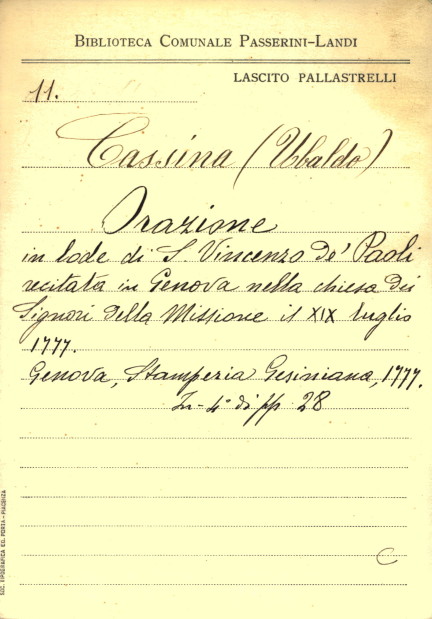 BIBLIOTECA COMUNALE PASSERINI-LANDI
LASCITO PALLASTRELLI
11.
Cassina (Ubaldo)
Orazione
in lode di S. Vincenzo de' Paoli
recitata in Genova nella chiesa dei
Signori della Missione il XIX luglio
1777.
Genova, Stamperia Gesiniana, 1777.
In-4° di pp 28
C
SOC. TIPOGRAFICA ED. PORTA - PIACENZA